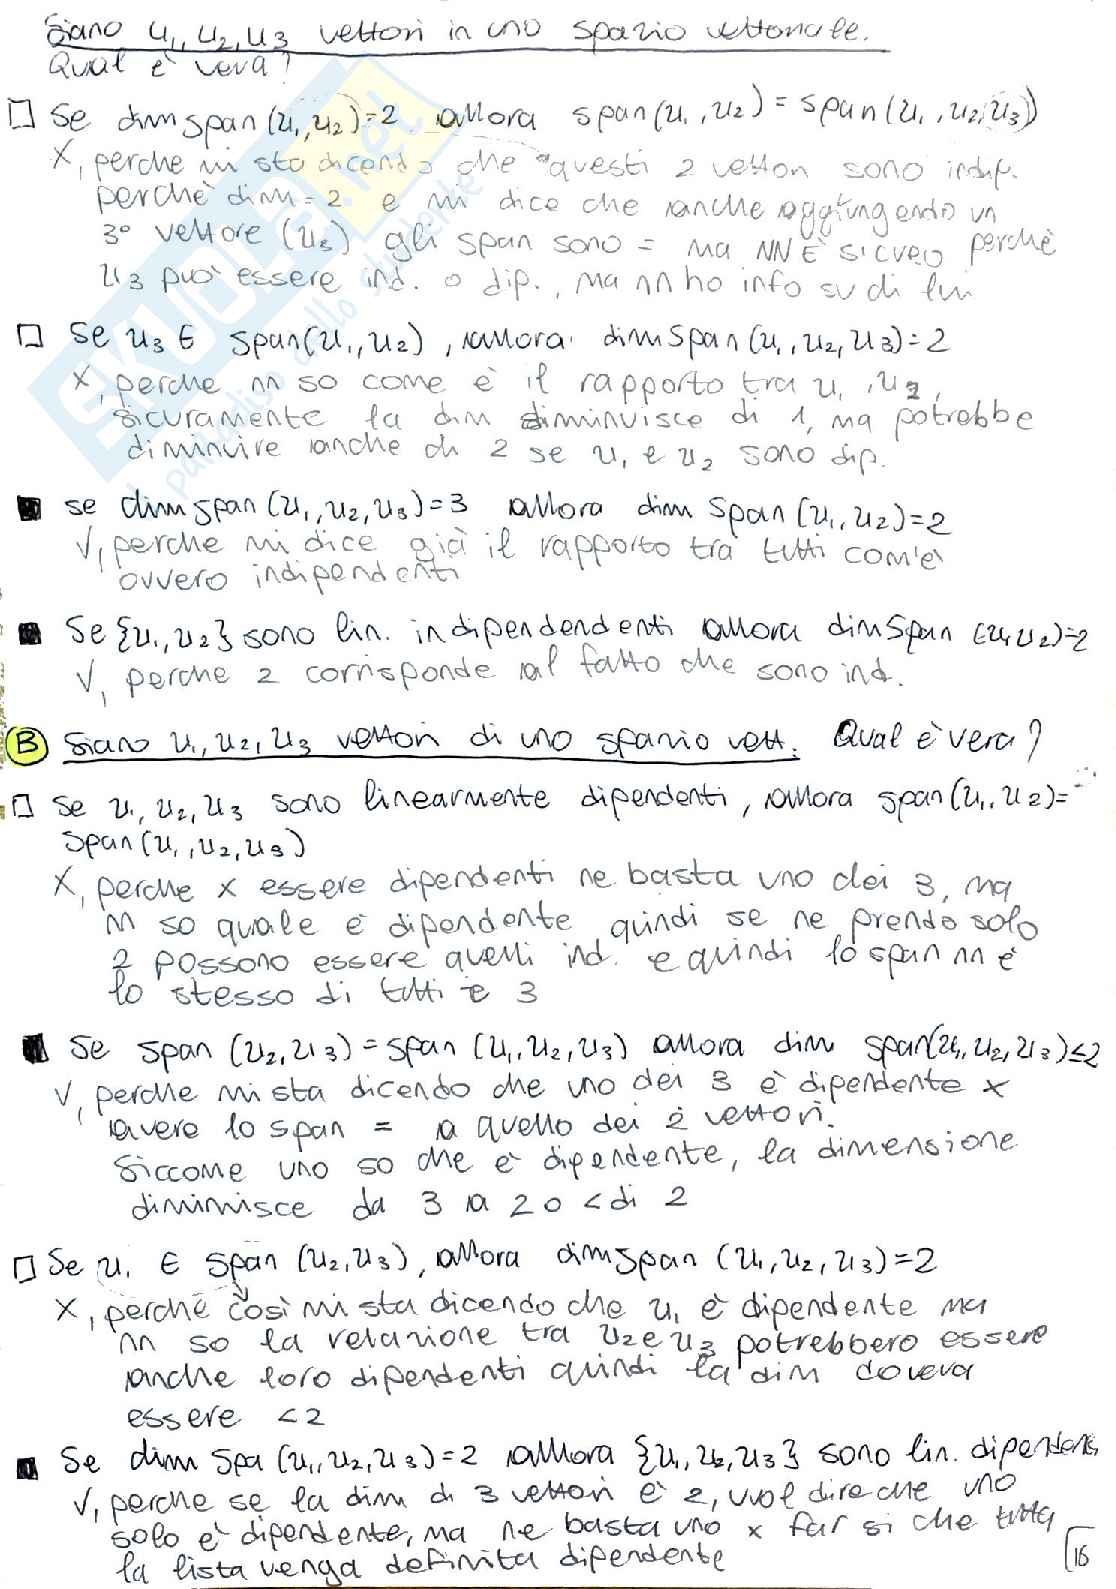 Siano u1, u2, u3 vettori in uno spazio vettoriale.
Qual è vera?
□ Se dim span(u1, u2)=2 allora span(u1, u2) = span(u1, u2, u3)
X, perche mi sta dicendo che questi 2 vettori sono indip.
perchè dim=2 e mi dice che anche aggiungendo un
3° vettore (u3) gli span sono = ma NN È SICURO perchè
u3 può essere ind. o dip., ma nn ho info su di lui
□ Se u3 ∈ span(u1, u2), allora dim span(u1, u2, u3)=2
X, perche nn so come è il rapporto tra u1, u2,
sicuramente la dim diminuisce di 1, ma potrebbe
diminuire anche di 2 se u1 e u2 sono dip.
■ se dim span(u1, u2, u3)=3 allora dim span(u1, u2)=2
V, perche mi dice già il rapporto tra tutti com'è
ovvero indipendenti
■ Se {u1, u2} sono lin. indipendendenti allora dim span (u1 u2)=2
V, perche 2 corrisponde al fatto che sono ind.
B Siano u1, u2, u3 vettori di uno spazio vett. Qual è vera?
□ Se u1, u2, u3 sono linearmente dipendenti, allora span(u1, u2)=
span(u1, u2, u3)
X, perche x essere dipendenti ne basta uno dei 3, ma
nn so quale è dipendente quindi se ne prendo solo
2 possono essere quelli ind. e quindi lo span nn è
lo stesso di tutti e 3
■ Se span (u2, u3) = span (u1, u2, u3) allora dim span(u1, u2, u3)≤2
V, perche mi sta dicendo che uno dei 3 è dipendente x
avere lo span = a quello dei 2 vettori.
Siccome uno so che è dipendente, la dimensione
diminuisce da 3 a 2 o < di 2
□ Se u1 ∈ span (u2, u3), allora dim span (u1, u2, u3)=2
X, perchè così mi sta dicendo che u1 è dipendente ma
nn so la relazione tra u2 e u3 potrebbero essere
anche loro dipendenti quindi la dim doveva
essere <2
■ Se dim spa (u1, u2, u3)=2 allora {u1, u2, u3} sono lin. dipendenti
V, perche se la dim di 3 vettori è 2, vuol dire che uno
solo è dipendente, ma ne basta uno x far si che tutta
la lista venga definita dipendente
16
SKUOLA.net
il paradiso dello studente